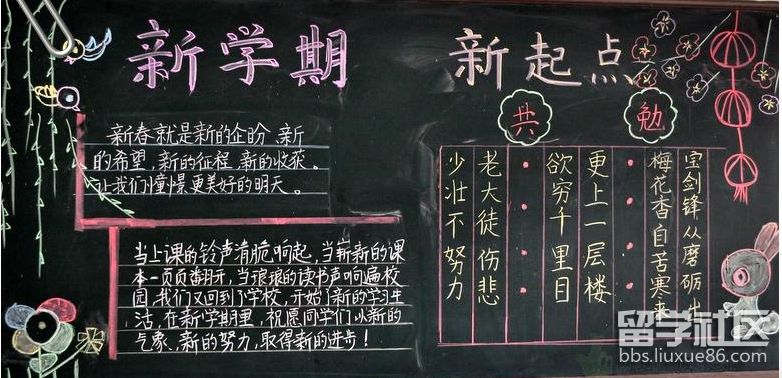 新学期 新起点
新春就是新的企盼、新
的希望,新的征程,新的收获。
让我们憧憬更美好的明天。
当上课的铃声清脆响起,当崭新的课
本一页页翻开,当琅琅的读书声响遍校
园,我们又回到了学校,开始了新的学习生
活,在新学期里,祝愿同学们以新的
气象、新的努力,取得新的进步!
共勉
少壮不努力
老大徒伤悲
欲穷千里目
更上一层楼
梅花香自苦寒来
宝剑锋从磨砺出
留学社区
bbs.liuxue86.com